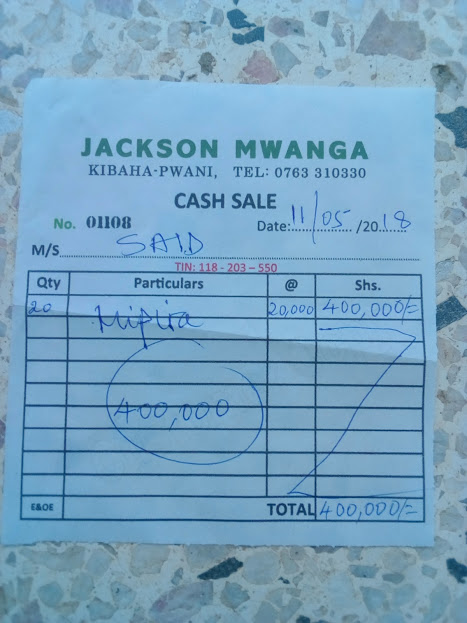 JACKSON MWANGA
KIBAHA-PWANI, TEL: 0763 310330
CASH SALE
No. 01108 Date: 11/05/2018
M/S SAID
TIN: 118 - 203 - 550
Qty Particulars @ Shs.
20 Mipira 20,000 400,000/=
400,000
E&OE TOTAL 400,000/=